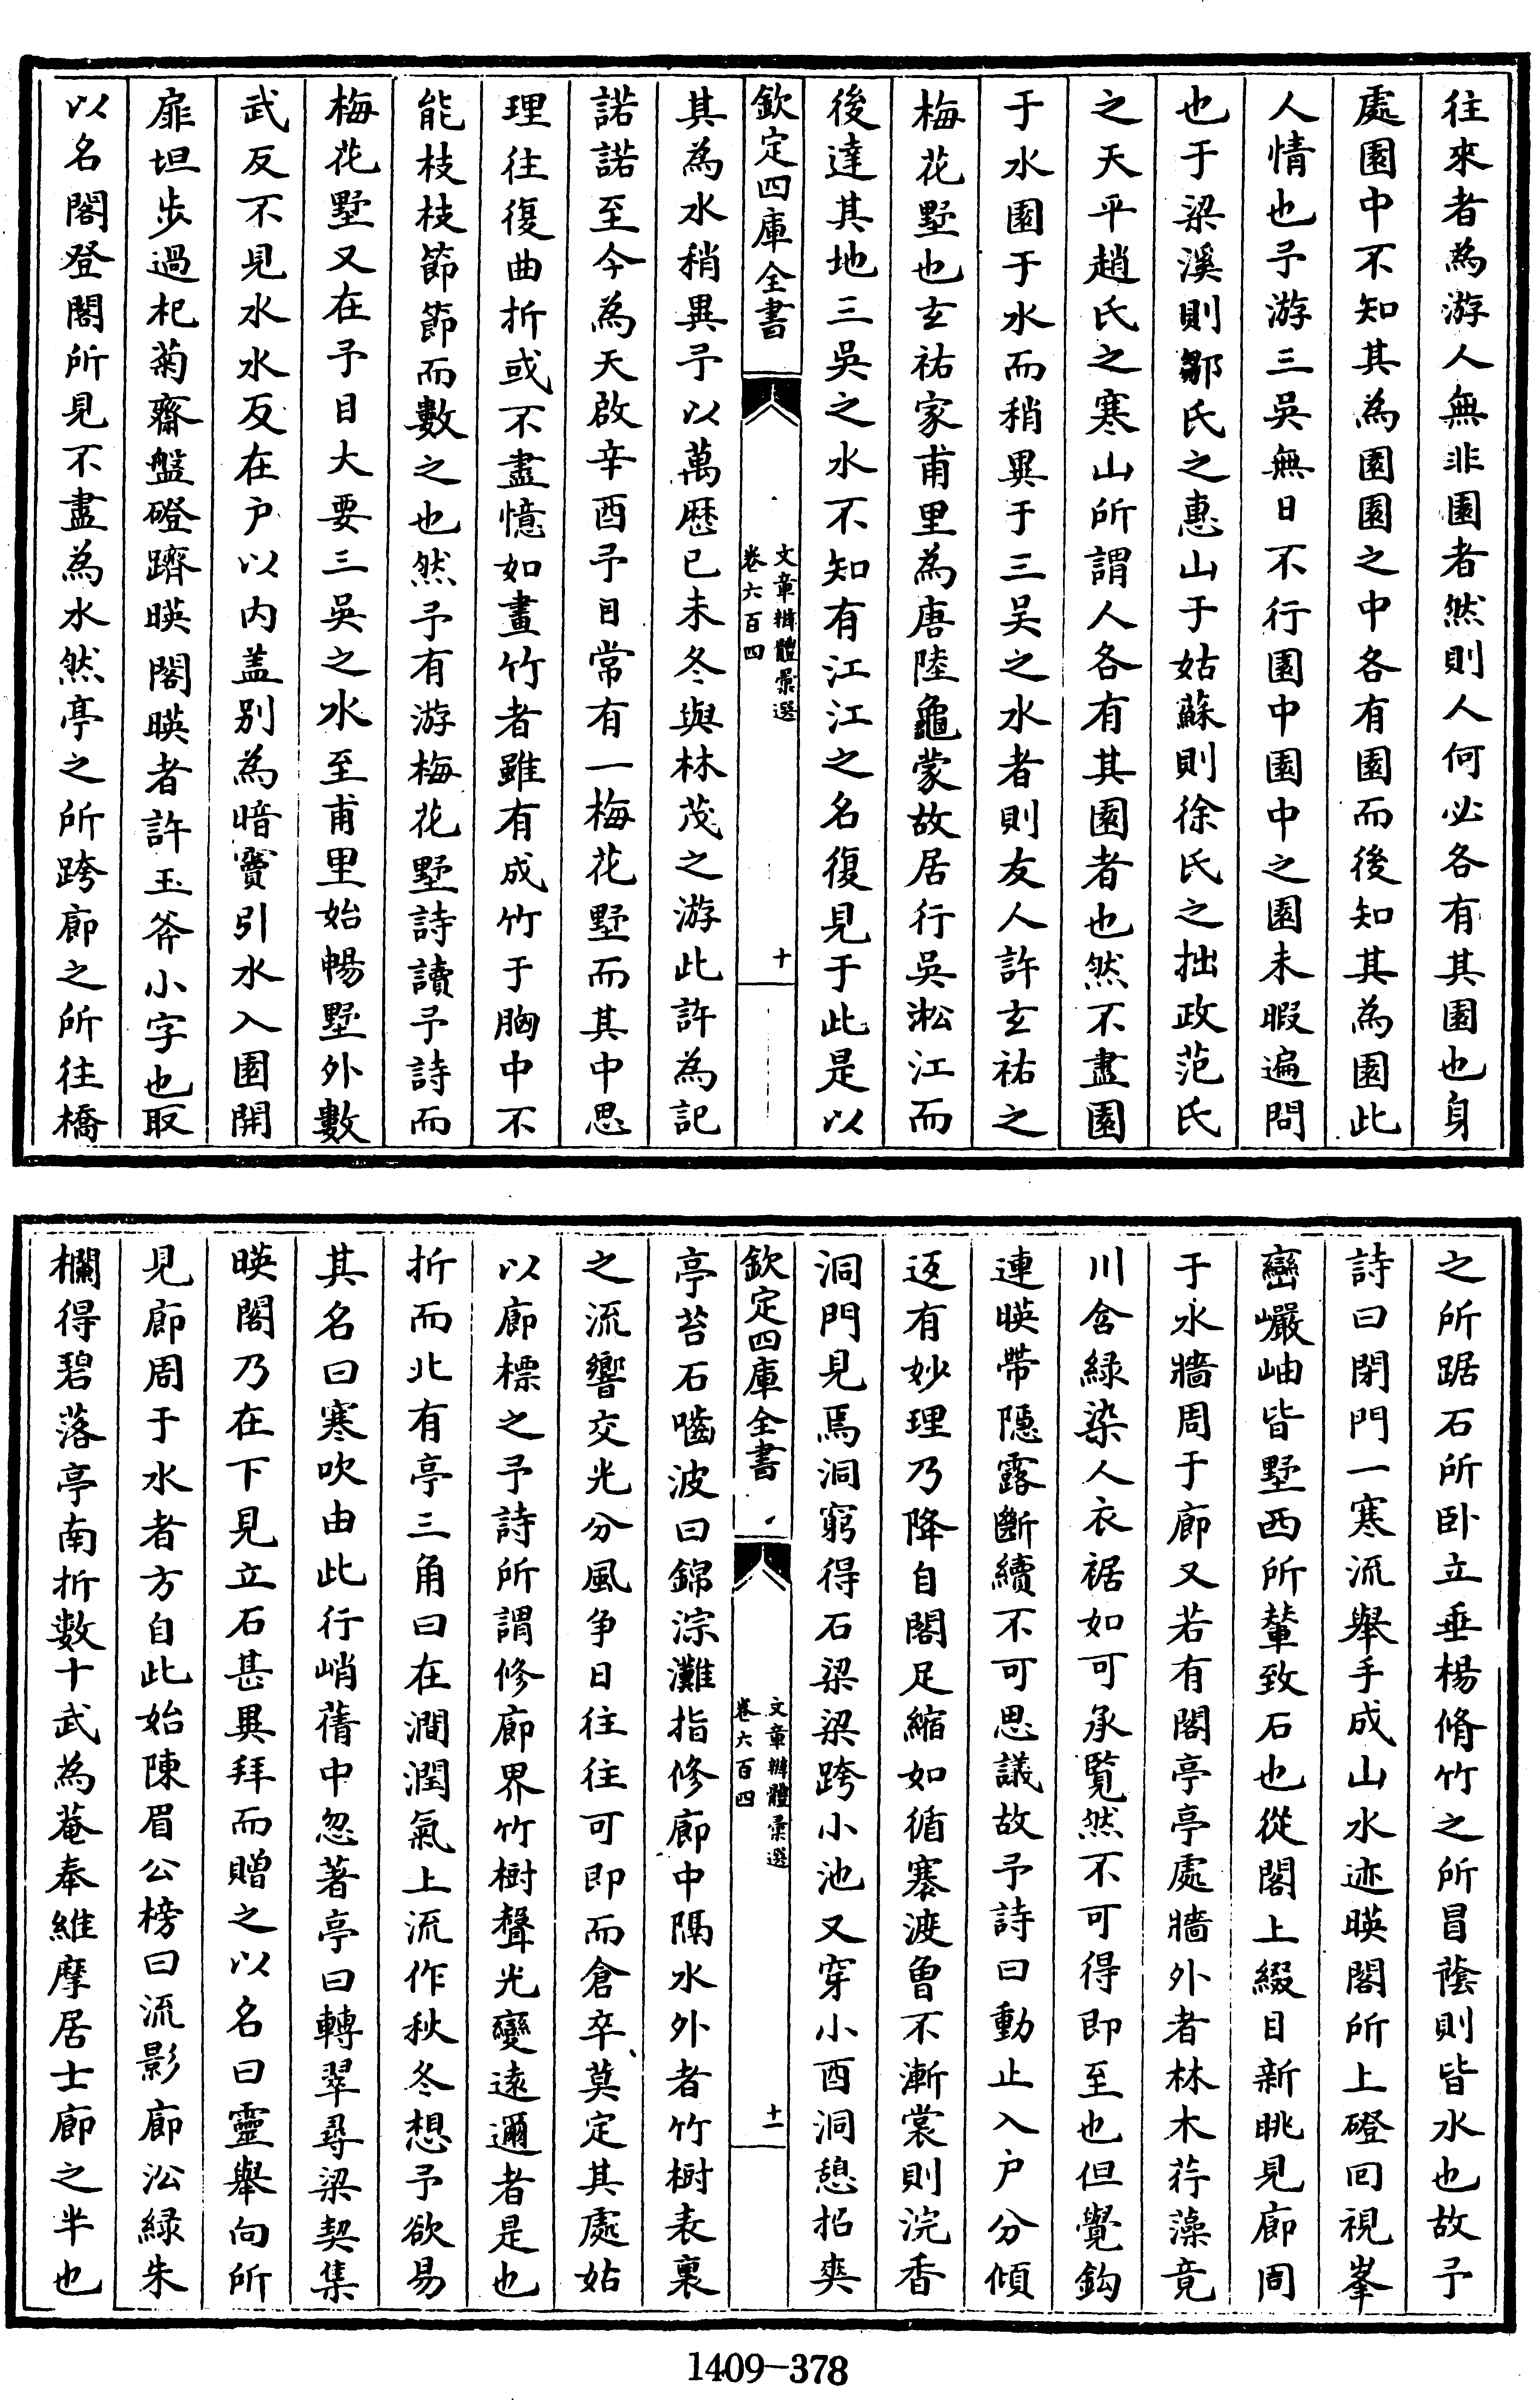 往來者為游人無非園者然則人何必各有其園也身
處園中不知其為園園之中各有園而後知其為園此
人情也予游三吳無日不行園中園中之園未暇遍問
也于梁溪則鄒氏之惠山于姑蘇則徐氏之拙政范氏
之天平趙氏之寒山所謂人各有其園者也然不盡園
于水園于水而稍異于三吳之水者則友人許玄祐之
梅花墅也玄祐家甫里為唐陸龜蒙故居行吳淞江而
後達其地三吳之水不知有江江之名復見于此是以
欽定四庫全書
文章辨體彙選
卷六百四
十
其為水稍異予以萬歷己未冬與林茂之游此許為記
諾諾至今為天啟辛酉予目常有一梅花墅而其中思
理往復曲折或不盡憶如畫竹者雖有成竹于胸中不
能枝枝節節而數之也然予有游梅花墅詩讀予詩而
梅花墅又在予目大要三吳之水至甫里始暢墅外數
武反不見水水反在户以内蓋别為暗竇引水入園開
扉坦步過杞菊齋盤磴躋暎閣暎者許玉斧小字也取
以名閣登閣所見不盡為水然亭之所跨廊之所往橋
之所踞石所卧立垂楊脩竹之所冒蔭則皆水也故予
詩曰閉門一寒流舉手成山水迹暎閣所上磴回視峯
巒巖岫皆墅西所輦致石也從閣上綴目新眺見廊周
于水牆周于廊又若有閣亭亭處牆外者林木荇藻竟
川含綠染人衣裾如可承覽然不可得即至也但覺鈎
連暎帶隱露斷續不可思議故予詩曰動止入户分傾
返有妙理乃降自閣足縮如循褰渡曾不漸裳則浣香
洞門見焉洞窮得石梁梁跨小池又穿小酉洞憩招爽
欽定四庫全書
文章辨體彙選
卷六百四
十一
亭苔石嚙波曰錦淙灘指修廊中隔水外者竹樹表裏
之流響交光分風争日往往可即而倉卒莫定其處姑
以廊標之予詩所謂修廊界竹樹聲光變遠邇者是也
折而北有亭三角曰在澗澗氣上流作秋冬想予欲易
其名曰寒吹由此行峭蒨中忽著亭曰轉翠尋梁契集
暎閣乃在下見立石甚異拜而贈之以名曰靈舉向所
見廊周于水者方自此始陳眉公榜曰流影廊沿綠朱
欄得碧落亭南折數十武為菴奉維摩居士廊之半也
1409-378